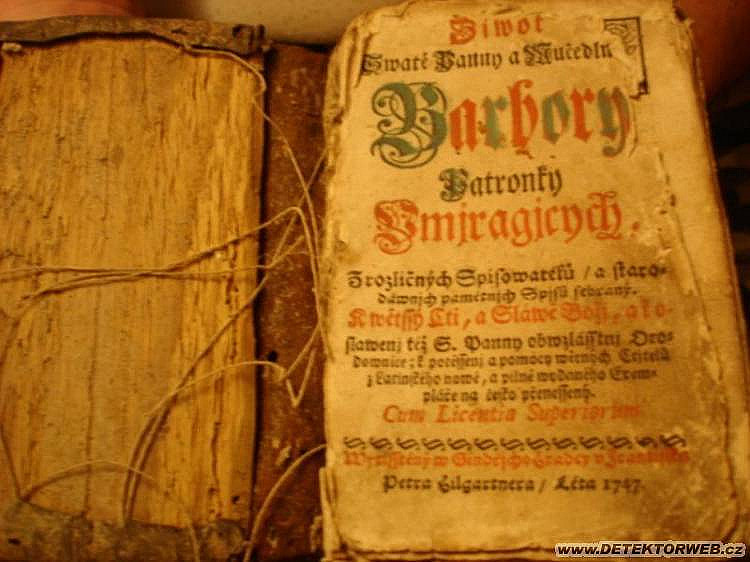 Žiwot
Swaté Panny a Mučedln
Barbory
Patronky
Vmjragjcych.
Z rozličných Spisowatelů / a staro-
dáwnjch pamětnjch Spjsů sebraný.
K wětssý Cti, a Sláwě Božj, a k o-
slawenj též S. Panny obwzlásstnj Oro-
downice; k potěssenj a pomocy wěrných Ctjtelů
z Latinského nowě, a pilně wydaného Exem-
pláře na česko přenessený.
Cum Licentia Superiorum.
Wytisstěný w Gindřicho Hradcy v Frantisska
Petra Hilgartnera / Léta 1747.
www.DETEKTORWEB.cz